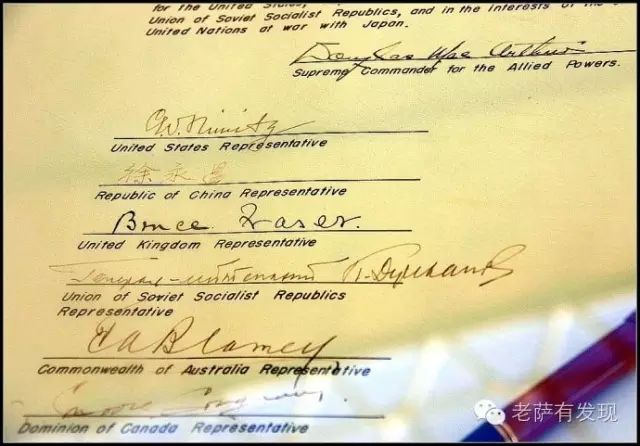 for the United States,
Union of Soviet Socialist Republics, and in the interests of the
United Nations at war with Japan.
Douglas MacArthur
Supreme Commander for the Allied Powers.
C.W. Nimitz
United States Representative
徐永昌
Republic of China Representative
Bruce Fraser.
United Kingdom Representative
Генерал-лейтенант К. Деревянко
Union of Soviet Socialist Republics
Representative
T A Blamey
Commonwealth of Australia Representative
Dominion of Canada Representative
老萨有发现